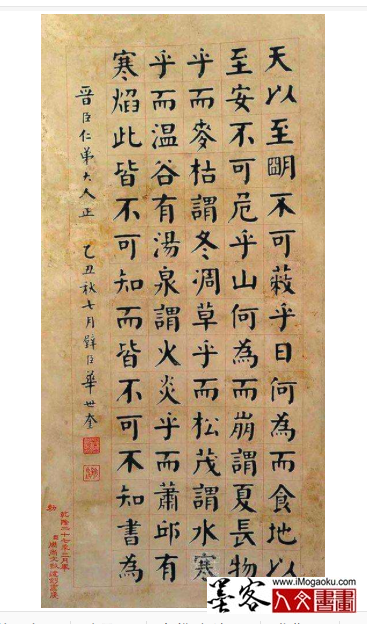 天以至朙不可蔽乎日何為而食地以
至安不可危乎山何為而崩謂夏長物
乎而麥枯謂冬凋草乎而松茂謂水寒
乎而温谷有湯泉謂火炎乎而蕭邱有
寒焰此皆不可知而皆不可不知書為
晉臣仁弟大人正 乙丑秋七月璧臣華世奎
乾隆二十七年三月奉
勅
www.iMogaoku.com
墨客 人文書畫